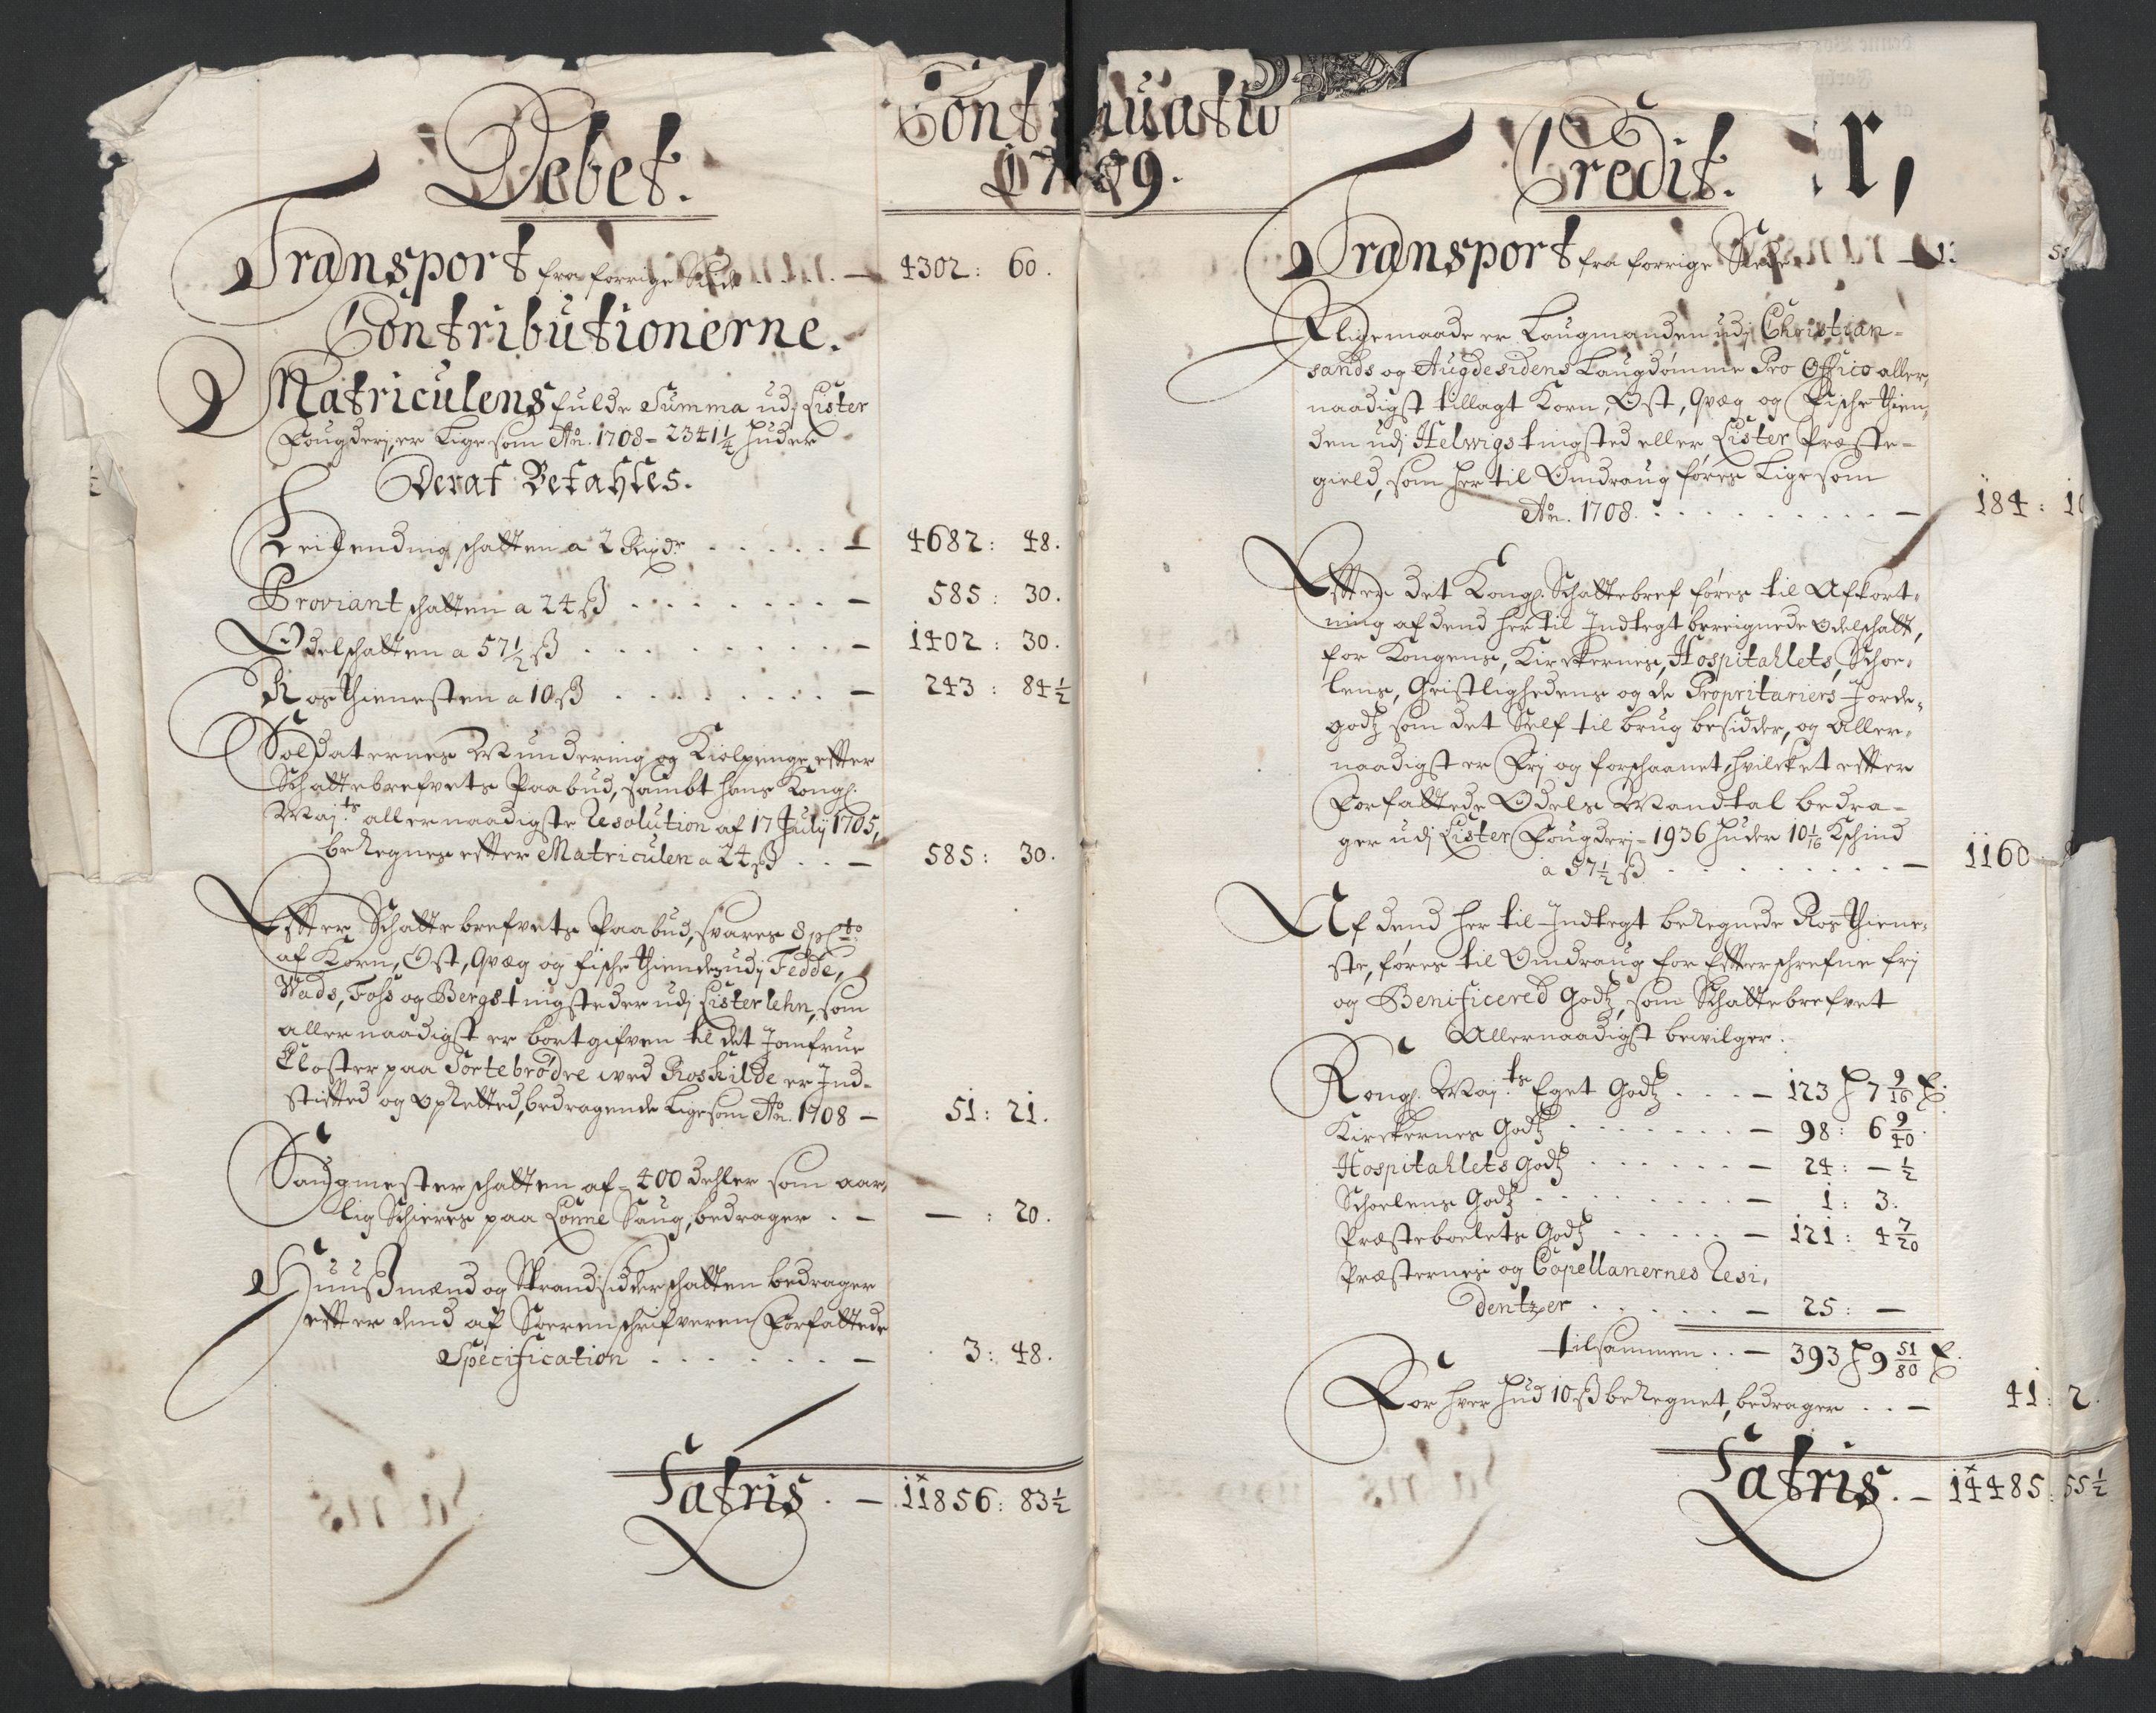 Debet.
Continuatio
1709.
Transport fra forrige Side . . . . — 4302: 60.
Contributionerne.
Matriculens fulde Summa udj Lister
Fougderj, er lige som Ao. 1708 - 2341¼ Huder
Deraf Betahles.
Leilendingschatten a 2 Rixdr . . . . . — 4682: 48.
Proviantschatten a 24 ß . . . . . . . — 585: 30.
Odelschatten a 57½ ß . . . . . . . . — 1402: 30.
Rosthienesten a 10 ß . . . . . . . — 243: 84½
Soldaternes Mundering og Kiolpenge effter
Schattebrefvets Paabud, sambt hans Kongl.
Maj.ts allernaadigste Resolution af 17 Julij 1705,
beregnes effter Matriculen a 24 ß . . — 585: 30.
Effter Schattebrefvets Paabud, svares 8
af Korn, Ost, Qvæg og fische thiender udj Fedde,
Vads, Foss og Bergs tingsteder udj Lister lehn, som
allernaadigst er bortgifven til det Jomfrue
Closter paa Sortebrødre ved Roskilde er Ind-
stifted og opretted, bedragende lige som Ao. 1708 — 51: 21.
Saugmesterschatten af - 400 dehler som aar-
lig Schieres paa Lonne Saug, bedrager . — — : 20.
Huusmænd og Strandsidderschatten bedrager
effter dend af Sorenschrifveren Forfattede
Specification . . . . . . . — 3: 48.
Latris . — 11856: 83½
Credit.
r,
Transport fra forrige Side
Lligemaade er Laugmanden udj Christian-
sands og Augdesidens Laugdømme Pro Officio aller-
naadigst tillagt Korn, Ost, Qvæg og Fische thien-
den udj Helwigs tingsted eller Lister Præste-
gield, som her til Omdraug føres lige som
Ao. 1708. . . . . . . . . . — 184: 1
Effter det Kongl. Schattebref føres til Afkort-
ning af dend her til Indtegt beregnede odelschatt,
for Kongens, Kirckernes, Hospitahlets, Schoe-
lens, Geistlighedens og de Propritariers Jorde-
godtz som det Self til brug besidder, og Aller-
naadigst er Frj og forschaanet, hvilcket effter
Forfattede Odels Mandtal bedra-
ger udj Lister Fougderj - 1936 Huder 10 1/16 Kschind
a 57½ ß . . . . . . . . . — 1160
Af dend her til Indtegt beregnede Rosthiene-
ste, føres til Omdraug for Effterschrefne frj
og Benificered Godtz, som Schattebrefvet
Allernaadigst bewilger.
Kongl. Maj.ts Eget Godtz . . . — 123 H 7 9/16 
Kirckernes Godtz . . . . . . — 98: 6 9/40.
Hospitahlets Godtz . . . . . — 24: — ½
Schoelens Godtz . . . . . . — 1: 3.
Præsteboelets Godtz . . . . . — 121: 4 7/20
Præsternes og Capellanernes Resi-
dentzer . . . . . . — 25: —
tilsammen . . — 393 H 9 51/80
For hver Hud 10 ß beregnet, bedrager . . — 41: 2.
Latris. — 14485: 55½